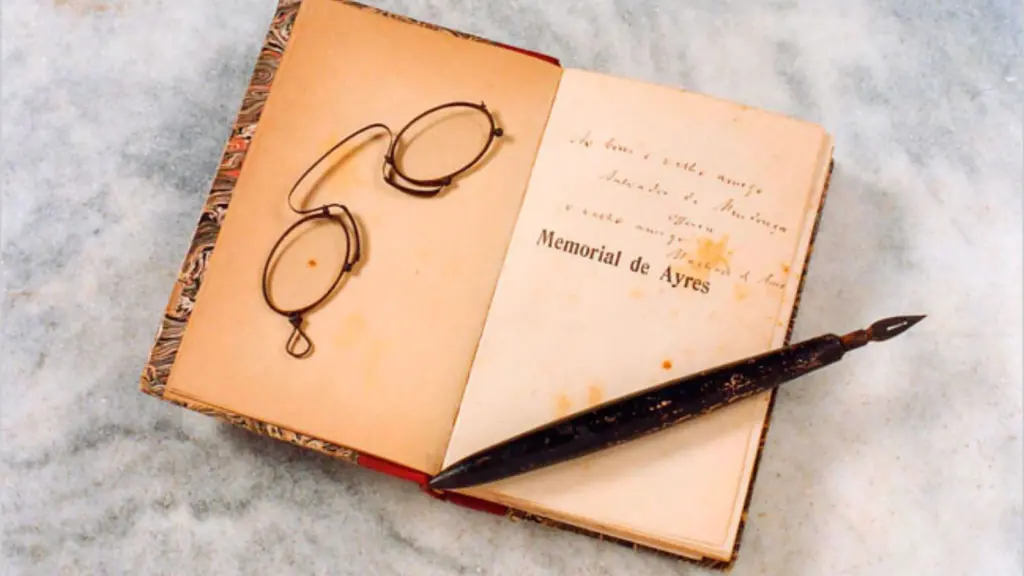 Ao bom e velho amigo
de Mendonça
o velho amigo
Machado de Assis
Memorial de Ayres